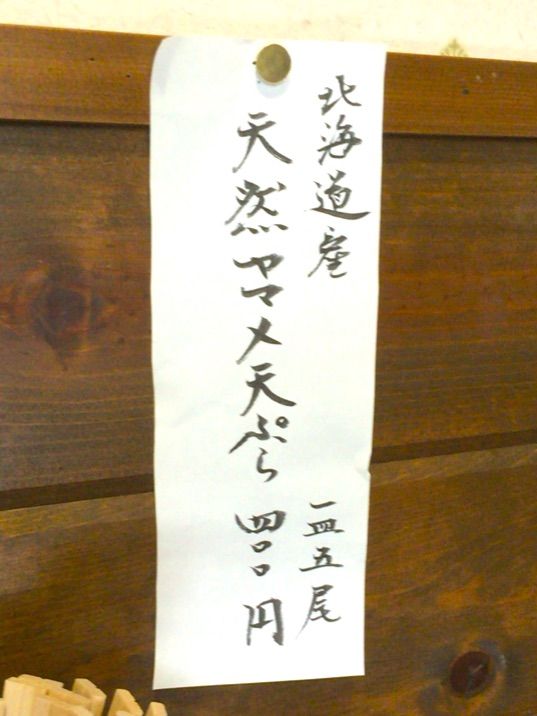 北海道産 一皿五尾
天然ヤマメ天ぷら 四〇〇円